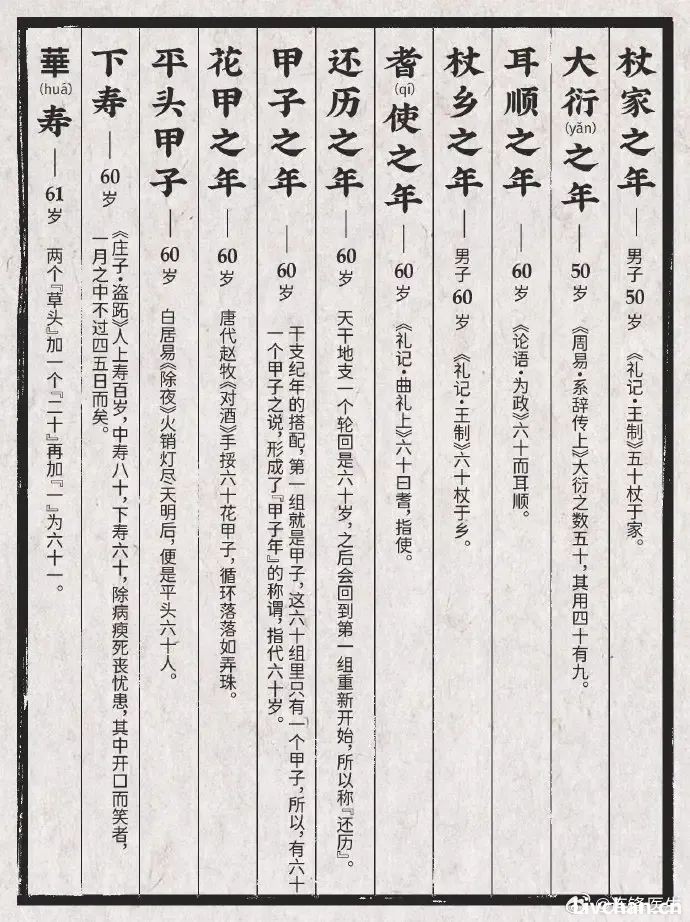 杖家之年——男子50岁 《礼记·王制》五十杖于家。
大衍(yǎn)之年——50岁 《周易·系辞传上》大衍之数五十，其用四十有九。
耳顺之年——60岁 《论语·为政》六十而耳顺。
杖乡之年——男子60岁 《礼记·王制》六十杖于乡。
耆(qí)使之年——60岁 《礼记·曲礼上》六十曰耆，指使。
还历之年——60岁 天干地支一个轮回是六十岁，之后会回到第一组重新开始，所以称『还历』。
甲子之年——60岁 干支纪年的搭配，第一组就是甲子，这六十组里只有一个甲子，所以，有六十
一个甲子之说，形成了『甲子年』的称谓，指代六十岁。
花甲之年——60岁 唐代赵牧《对酒》手挼六十花甲子，循环落落如弄珠。
平头甲子——60岁 白居易《除夜》火销灯尽天明后，便是平头六十人。
下寿——60岁 《庄子·盗跖》人上寿百岁，中寿八十，下寿六十，除病瘐死丧忧患，其中开口而笑者，
一月之中不过四五日而矣。
華(huā)寿——61岁 两个『草头』加一个『二十』再加『一』为六十一。